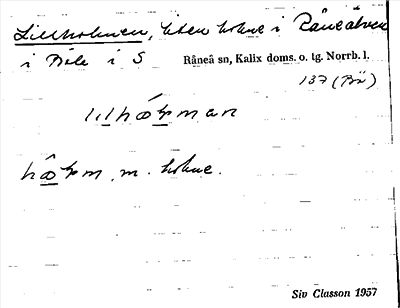 Lillholmen, liten holme i Råneälven
i Böle i S Råneå sn, Kalix doms. o. tg. Norrb. l.
137 (Bö)
hǽꞎm. m. holme.
Siv Classon 1957